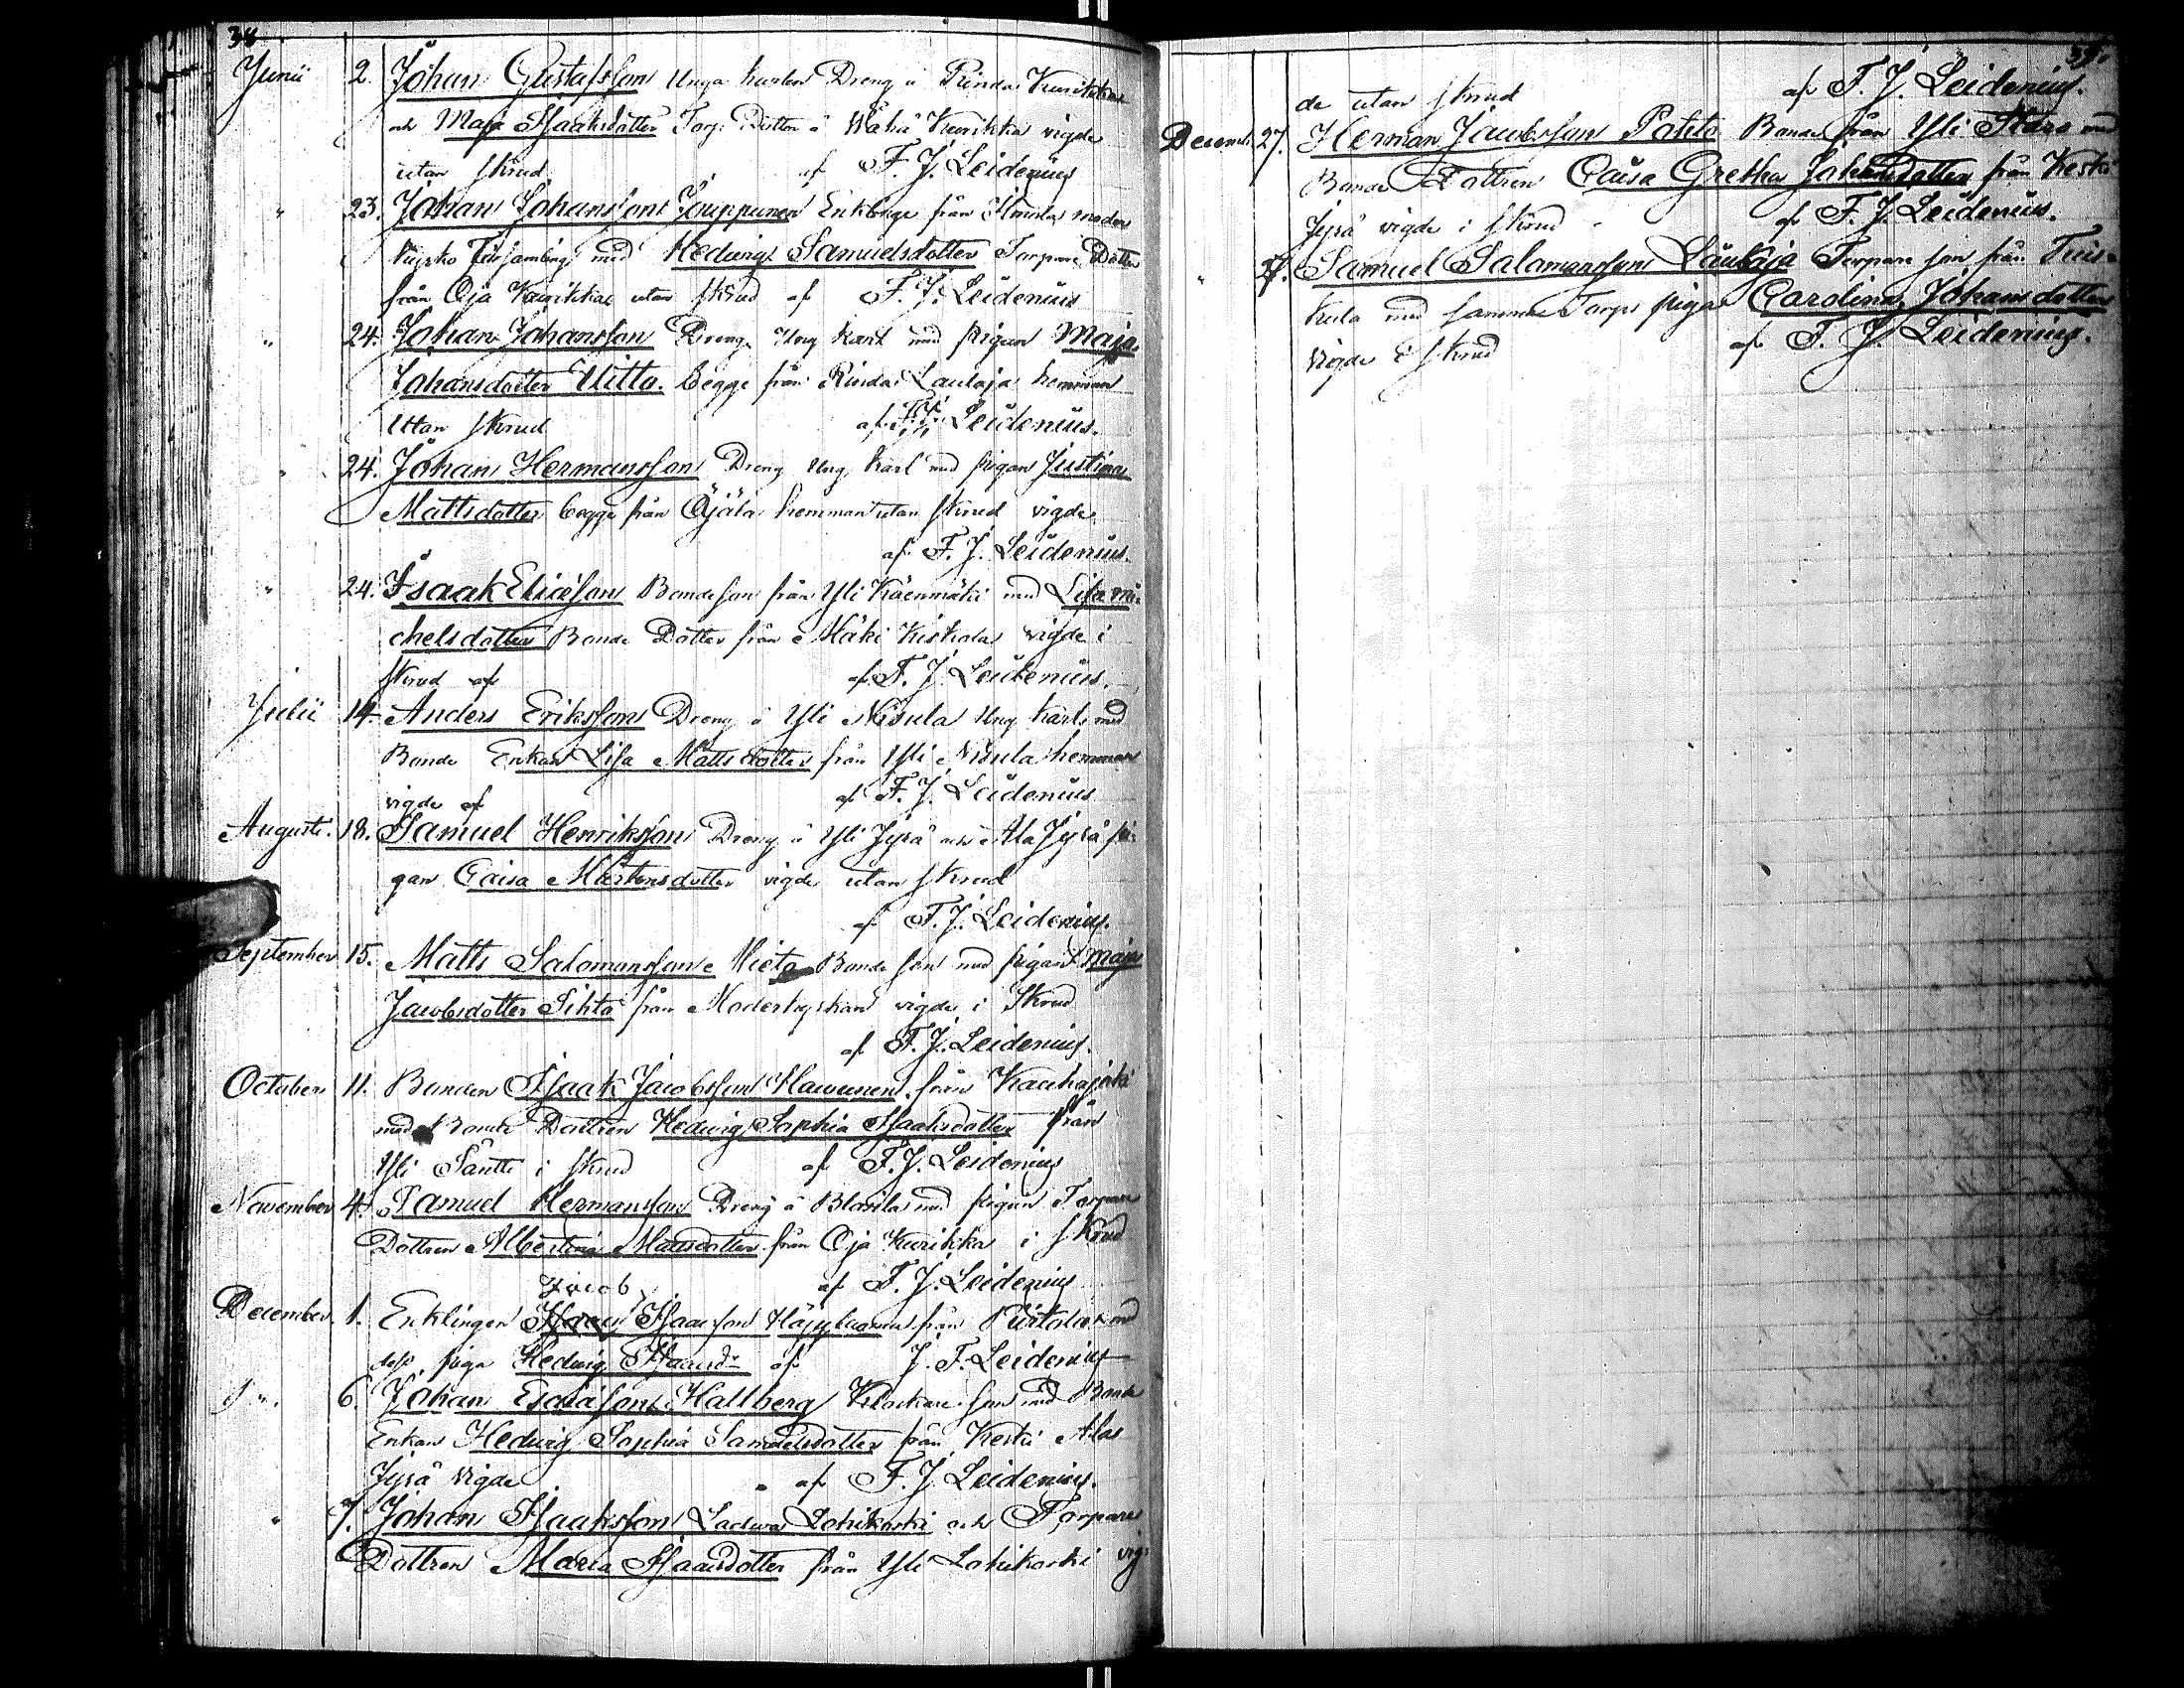 38
Junii 2. Johan Gustafsson Unga karlen Dreng å Rinda Kurikka
och Maja Isaaksdotter Torp. Dotter å Wähä Kurikka vigde
utan skrud af F. J. Leidenius
" 23. Johan Johansson Jouppunen Enklinge från Ilmola moder
kyrko Församling med Hedwig Samuelsdotter Torpare Dotter
från Oja Kurikka utan skrud af F. J. Leidenius
" 24. Johan Johansson Dreng Ung karl med pigan Maja
Johansdotter Uitto begge från Rinda Laulaja hemman
utan skrud af F. J. Leidenius.
" 24. Johan Hermansson Dreng Ung karl med pigan Justina
Mattsdotter begge från Öjälä hemman utan skrud vigde
af F. J. Leidenius.
" 24. Isaak Ericsson Bondeson från Yli Käenmäki med Lisa Mi-
chelsdotter Bonde Dotter från Mäki Kiskola vigde i
skrud af af F. J. Leidenius.
Julii 14. Anders Eriksson Dreng å Yli Nisula Ung karl med
Bonde Enkan Lisa Mattsdotter från Yli Nisula hemman
vigde af af F. J. Leidenius
Augusti. 18. Samuel Henriksson Dreng å Yli Jyrä och Ala Jyrä pi-
gan Caisa Mårtensdotter vigde utan skrud
af F. J. Leidenius.
September 15. Matts Salomonsson Mieto Bonde son med pigan Maja
Jacobsdotter Pihto från Moderkyrkan vigde i Skrud
af F. J. Leidenius.
October 11. Bonden Isaak Jacobsson Hawunen från Kauhajoki
med Bonde Dottren Hedwig Sophia Isaaksdotter från
Yli Säntti i skrud af F. J. Leidenius
November 4. Samuel Hermansson Dreng å Blasila med pigan Torpare
Dottren Albertina Mattsdotter från Oja Kurikka i skrud
af F. J. Leidenius
Jacob
December 1. Enklingen Isaac Isaacson från med
dess piga Hedwig Isaacsd:r af J. F. Leidenius
" 6. Johan Esaiason Hallberg Klockare son med Bonde
Enkan Hedwig Sophia Samuelsdotter från Keski Ala
Jyrä vigde af F. J. Leidenius.
" 7. Johan Isaaksson Ladwa Lohikoski och Torpare
Dottren Maria Isaacsdotter från Yli Lohikoski vig-
39.
de utan skrud af F. J. Leidenius.
Decemb. 27. Herman Jacobsson Pohto Bonde från Yli med
Bonde Dottren Caisa Gretha Johansdotter från Keski
Jyrä vigde i skrud af F. J. Leidenius.
" 27. Samuel Salomonsson Laulaja Torpare son från Tuis-
kula med samma Torps pigan Carolina Johansdotter
vigde i skrud af F. J. Leidenius.